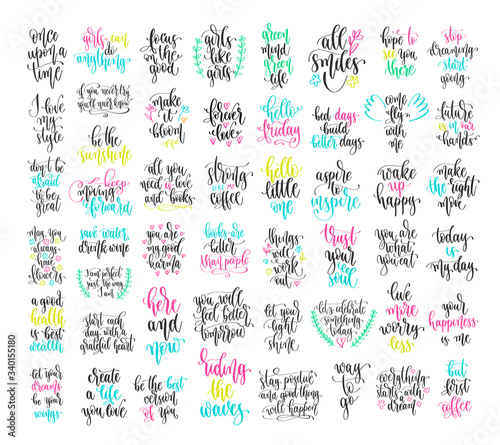 once
upon a
time
girls can
do
anything
focus
on the
good
girls
like
girls
green
mind
green
life
all
smiles
hope to
see you
there
stop
dreaming
start
going
I love
my
style
if you never try
you'll never know
be the
sunshine
make
it
bloom
forever
love
hello
friday
bad days
build
better
days
come
fly
with
me
future
is in our
hands
don't be
afraid
to be
great
keep
moving
forward
all you
need is love
and books
strong
like my
coffee
hello
little
one
aspire
to
inspire
wake
up
happy
make
the right
move
may you
always
save water
drink wine
I am perfect
just the way
I am
you are
my good
karma
books are
better
than people
things
will
work
out
trust
your
soul
you are
what
you eat
today
is
my day
a good
health
is best
wealth
start each
day with a
grateful heart
here
and
now
you will
feel better
tomorrow
let
your
light
shine
let's celebrate
something
today
live
more
worry
less
your
happiness
is me
let your
dreams
be your
wings
create
a life
you love
be the best
version
of you
riding
the
waves
stay positive
and good things
will happen
way
to
go
everything
starts with
dream
but
first
coffee
Adobe Stock | #340155180